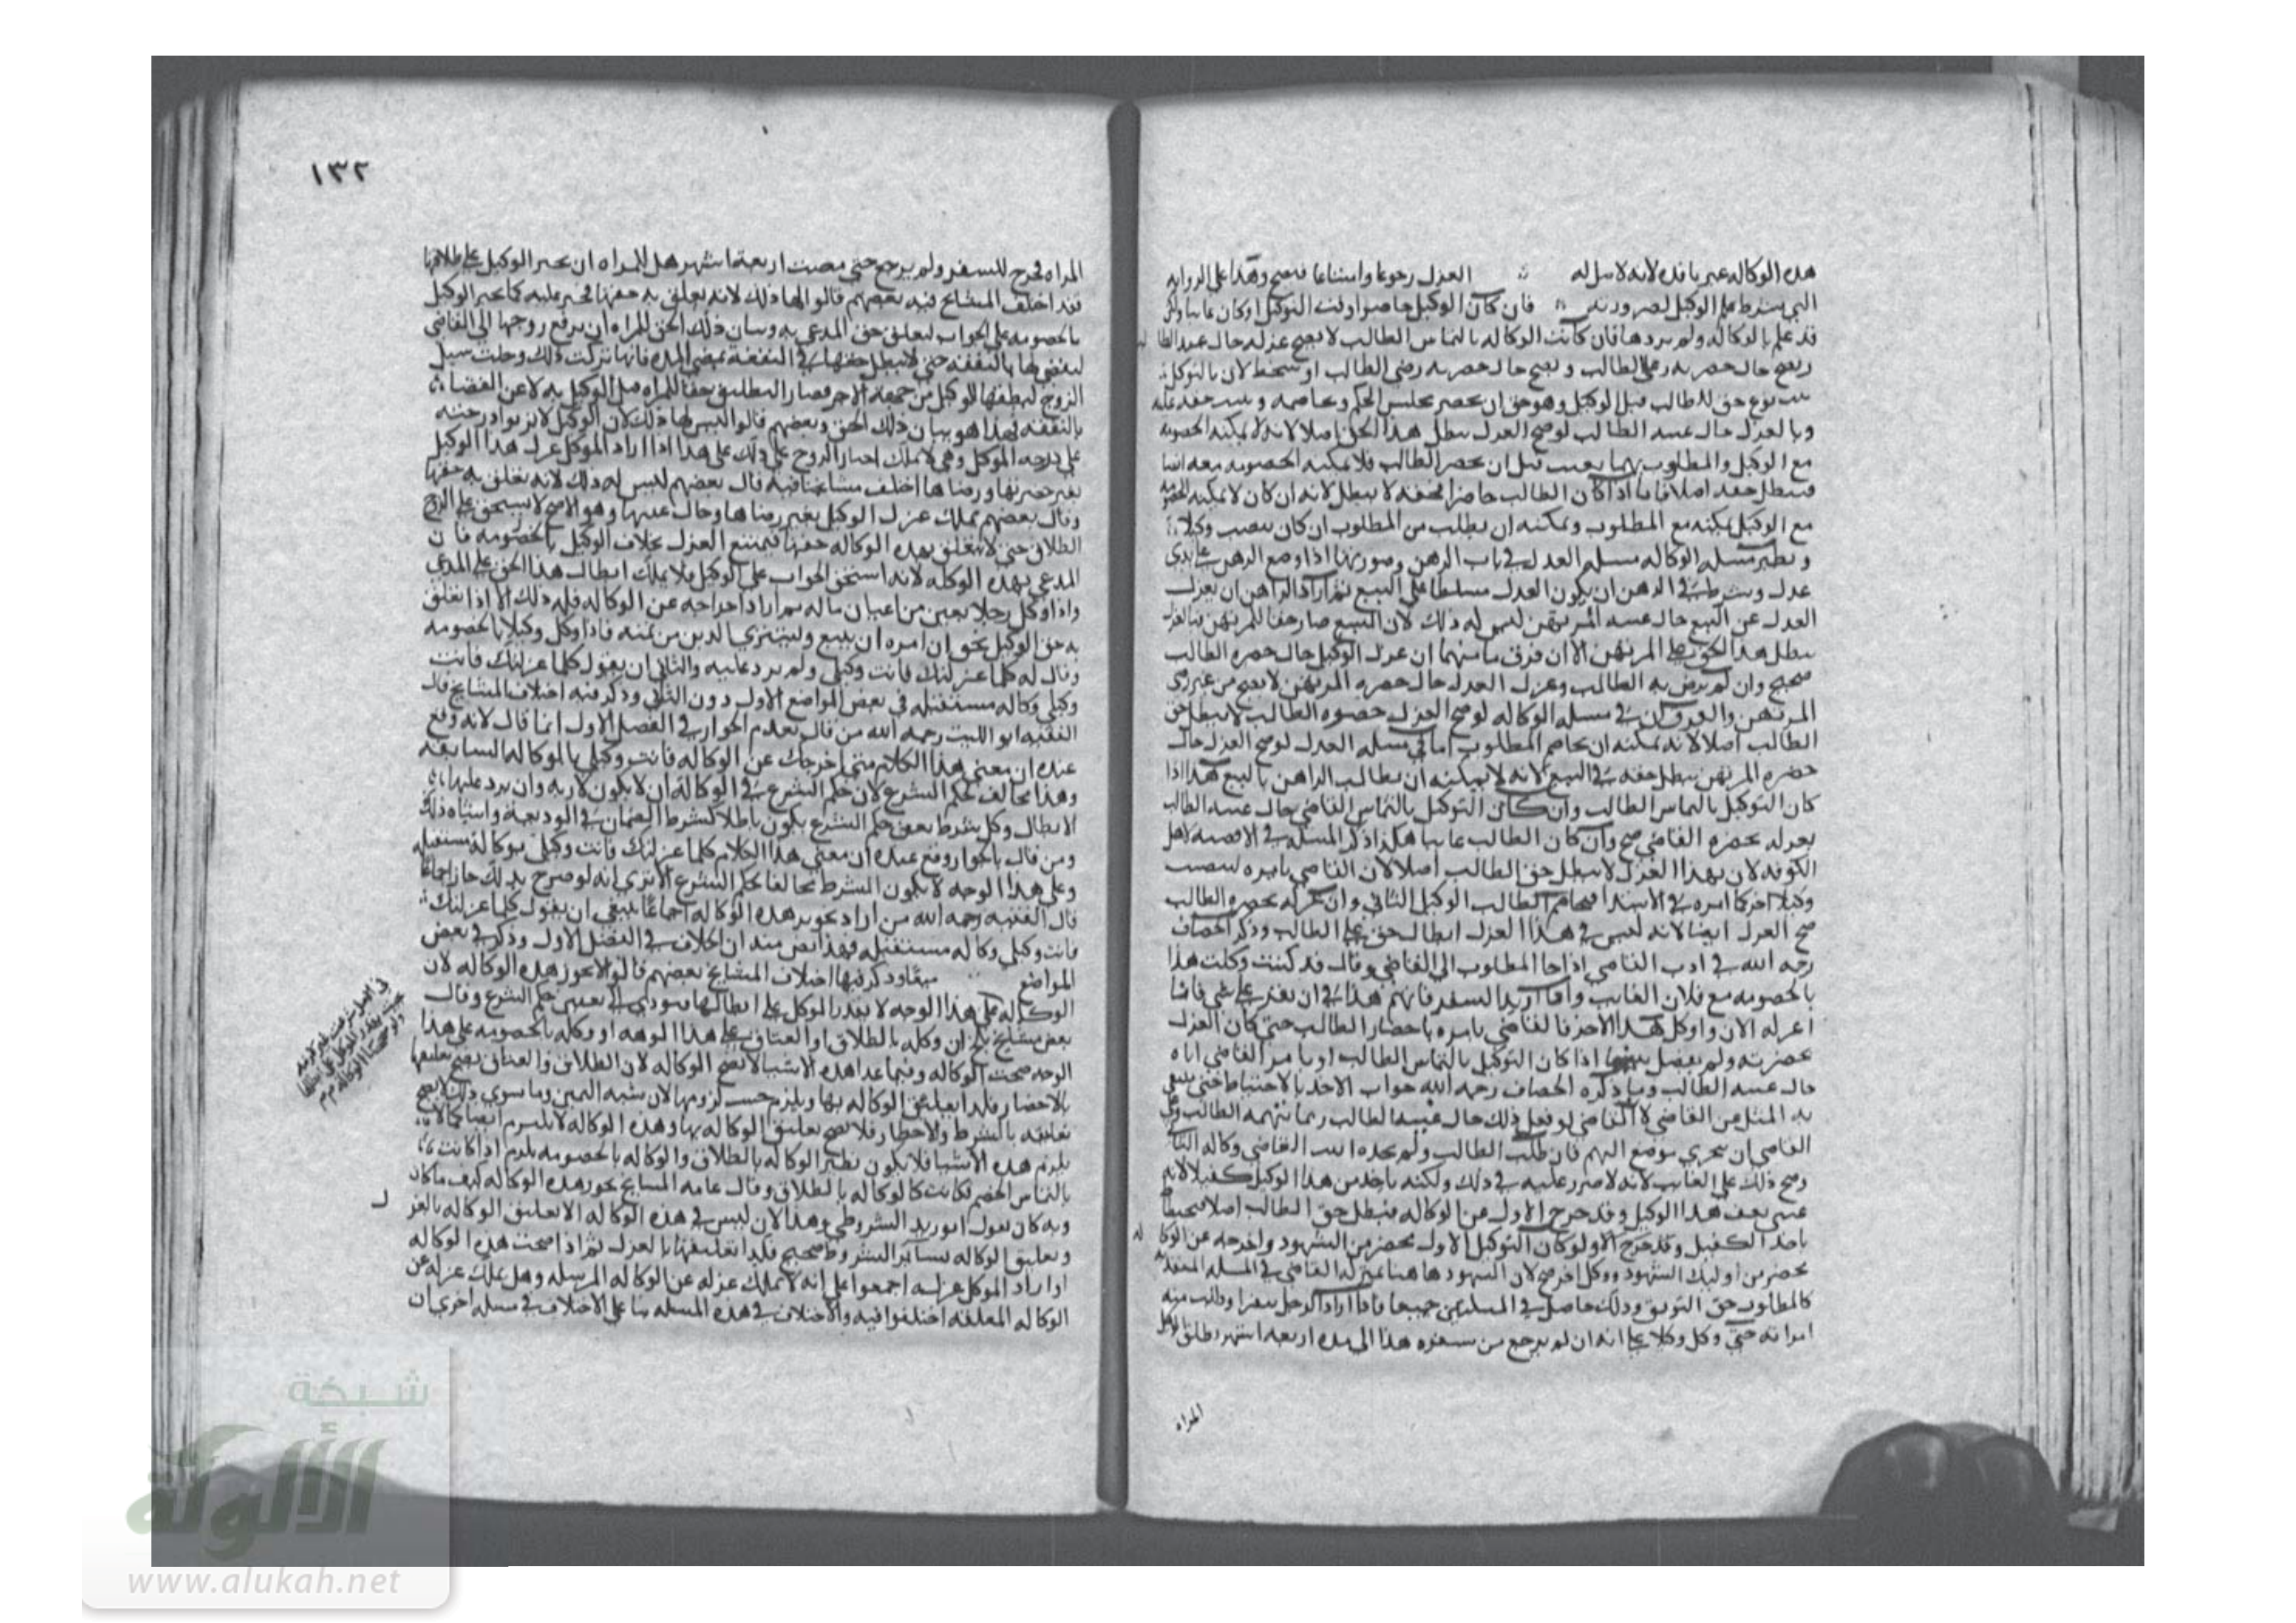 هذه الوكاله غير نافذه لانه لا سل له العزل رجوعا وامتناعا فيصح وهذا على الروايه
التي يشترط علم الوكيل لصيرورته فان كان الوكيل حاضرا وقت التوكيل او كان غايبا ولكن
قد علم بالوكاله ولم يردها فان كانت الوكاله بالتماس الطالب لا يصح عزله حال غيبه الطا لب
ويصح حال حضرته رضي الطالب او سخط لان بالتوكيل
ثبت نوع حق للطالب قبل الوكيل وهو حق ان يحضر مجلس الحكم ويخاصمه ويثبت حقه عليه
وبالعزل حال غيبه الطالب لو صح العزل يبطل هذا الحق اصلا لانه لا يمكنه الخصومه
مع الوكيل والمطلوب ربما يغيب قبل ان يحضر الطالب فلا يمكنه الخصومه معه ايضا
فيبطل حقه اصلا فاما اذا كان الطالب حاضرا فحقه لا يبطل لانه ان كان لا يمكنه الخصومه
مع الوكيل يمكنه مع المطلوب ويمكنه ان يطلب من المطلوب ان كان ينصب وكيلا
ونظير مسله الوكاله مسله العدل في باب الرهن وصورتها اذا وضع الرهن على يدي
عدل وشرط في الرهن ان يكون العدل مسلطا على البيع ثم اراد الراهن ان يعزل
العدل عن البيع حال غيبه المرتهن ليس له ذلك لان البيع صار حقا للمرتهن فبالعزل
يبطل هذا الحق على المرتهن الا ان فرق ما بينهما ان عزل الوكيل حال حضره الطالب
صحيح وان لم يرض به الطالب وعزل العدل حال حضره المرتهن لا يصح من غير رضى
المرتهن والفرق ان في مسله الوكاله لو صح العزل حضره الطالب لا يبطل حق
الطالب اصلا لانه يمكنه ان يخاصم المطلوب اما في مسله العدل لو صح العزل حال
حضره المرتهن يبطل حقه في البيع لانه لا يمكنه ان يطالب الراهن بالبيع هذا اذا
كان التوكيل بالتماس الطالب وان كان التوكيل بالتماس القاضي حال غيبه الطالب
بعزله بحضره القاضي صح وان كان الطالب غايبا هكذا ذكر المسله في الاقضيه لاهل
الكوفه لان بهذا العزل لا يبطل حق الطالب اصلا لان القاضي يامره لينصب
وكيلا اخر كما امره في الابتدا فيخاصم الطالب الوكيل الثاني وان عزله بحضره الطالب
صح العزل ايضا لانه ليس في هذا العزل ابطال حق على الطالب وذكر الخصاف
رحمه الله في ادب القاضي اذا جا المطلوب الى القاضي وقال قد كنت وكلت هذا
بالخصومه مع فلان الغايب وانا اريد السفر فانهم هذا في ان يقر على شي فانا
اعزله الان واوكل هذا الاخر فالقاضي يامره باحضار الطالب حتى كان العزل
بحضرته ولم يفصل بينهما اذا كان التوكيل بالتماس الطالب او بامر القاضي اياه
حال غيبه الطالب وما ذكره الخصاف رحمه الله جواب الاخذ بالاحتياط حتى ينتفي
به الميل من القاضي لا القاضي لو فعل ذلك حال غيبه الطالب ربما تتهمه الطالب وعلى
القاضي ان يتحرى موضع التهم فان طلب الطالب ولم يجده اثبت القاضي وكاله الثاني
وصح ذلك على الغايب لانه لا ضرر عليه في ذلك ولكنه ياخذ من هذا الوكيل كفيلا لانه
عسى يغيب هذا الوكيل وقد خرج الاول من الوكاله فيبطل حق الطالب اصلا فيحتاط
باخذ الكفيل وقد خرج الاول وكان التوكيل الاول بحضر من الشهود واخرجه عن الوكا له
بحضر من اوليك الشهود ووكل اخر صح لان الشهود هاهنا بمنزله القاضي في المسله المتقدمه
كالمطلوب حق التوثق وذلك حاصل في المسلتين جميعا فاذا اراد الرجل سفرا وطالب منه
امراته حتى وكل وكيلا على انه ان لم يرجع من سفره هذا الى مده اربعه اشهر وطلق الوكيل
المراه
١٣٢
المراه فخرج للسفر ولم يرجع حتى مضت اربعه اشهر هل للمراه ان تجبر الوكيل على طلاقها
فقد اختلف المشايخ فيه بعضهم قالوا لها ذلك لانه تعلق به حقها فيجبر عليه كما يجبر الوكيل
بالخصومه على الجواب لتعلق حق المدعي به وبيان ذلك الحق للمراه ان ترفع زوجها الى القاضي
ليقضي لها بالنفقه حتى لا يبطل حقها في النفقه بمضي المده فانها تركت ذلك وخلت سبيل
الزوج ليطلقها الوكيل من جهه الاخر فصار التطليق حقا للمراه قبل الوكيل به لا عن القضاء
بالنفقه لهذا هو بيان ذلك الحق وبعضهم قالوا ليس لها ذلك لان الوكيل لا تزداد درجته
على درجه الموكل وهي لا تملك اجبار الزوج على ذلك على هذا اذا اراد الموكل عزل هذا الوكيل
بغير حضرتها ورضاها اختلف مشايخنا فيه قال بعضهم ليس له ذلك لانه تعلق به حقها
وقال بعضهم يملك عزل الوكيل بغير رضاها وحال غيبتها وهو الاصح لا تستحق على الزوج
الطلاق حتى لا يتعلق بهذه الوكاله حقها فيمتنع العزل بخلاف الوكيل بالخصومه فان
المدعي بهذه الوكاله لانه استحق الجواب على الوكيل فلا يملك ابطال هذا الحق على المدعي
واذا وكل رجلا بعين من اعيان ماله ثم اراد اخراجه عن الوكاله فله ذلك الا اذا تعلق
به حق الوكيل نحو ان امره ان يبيع وليشتري الدين من ثمنه فاذا وكل وكيلا بالخصومه
وقال له كلما عزلتك فانت وكيلي ولم يرد عليه والثاني ان يقول كلما عزلتك فانت
وكيلي وكاله مستقبله في بعض المواضع الاول دون الثاني وذكر فيه اختلاف المشايخ قال
الفقيه ابو الليث رحمه الله من قال بعدم الجواز في الفصل الاول انما قال لانه وقع
عنده ان معنى هذا الكلام متى اخرجتك عن الوكاله فانت وكيلي بالوكاله السابقه
وهذا يخالف حكم الشرع لان حكم الشرع في الوكاله ان لا يكون لازبه وان يرد عليها
الابطال وكل شرط يغير حكم الشرع يكون باطلا كشرط الضمان في الوديعه واشباه ذلك
ومن قال بالجواز وقع عنده ان معنى هذا الكلام كلما عزلتك فانت وكيلي بوكاله مستقبله
وعلى هذا الوجه لا يكون الشرط مخالفا حكم الشرع الا ترى انه لو صرح بذلك جاز اجماعا
قال الفقيه رحمه الله من اراد تجويز هذه الوكاله اجماعا ينبغي ان يقول كلما عزلتك
فانت وكيلي وكاله مستقبله فهذا نص منه ان الخلاف في الفصل الاول وذكر في بعض
المواضع وذكر فيها اختلاف المشايخ بعضهم قالوا لا تجوز هذه الوكاله لان
الوكاله على هذا الوجه لا يقدر الموكل على ابطالها فيودي الى تغيير حكم الشرع وقال
بعض مشايخ بلخ ان وكله بالطلاق او العتاق على هذا الوجه او وكله بالخصومه على هذا
الوجه صحت الوكاله وفيما عدا هذه الاشيا لا تصح الوكاله لان الطلاق والعتاق يصح تعليقها
بالاخطار فلذا تعليق الوكاله بها ويلزم حسب لزومها لان شبه اليمين وما سوى ذلك لا يصح
تعليقه بالشرط والاخطار فلا يصح تعليق الوكاله بها وهذه الوكاله لا يلزم ايضا كما لا
يلزم هذه الاشيا فلا يكون نظير الوكاله بالطلاق والوكاله بالخصومه يلزم اذا كانت
بالتماس الخصم فكانت كالوكاله بالطلاق وقال عامه المشايخ تجوز هذه الوكاله كيف ما كان
وبه كان يقول ابو زيد الشروطي وهذا لان ليس في هذه الوكاله الا تعليق الوكاله بالعز ل
وتعليق الوكاله بسائر الشروط صحيح فكذا تعليقها بالعزل ثم اذا صحت هذه الوكاله
اذا اراد الموكل عزله اجمعوا على انه لا يملك عزله عن الوكاله المرسله وهل يملك عزله عن
الوكاله المعلقه اختلفوا فيه والاختلاف في هذه المسله بنا على الاختلاف في مسله اخرى ان
شبكة
الألوكة
www.alukah.net